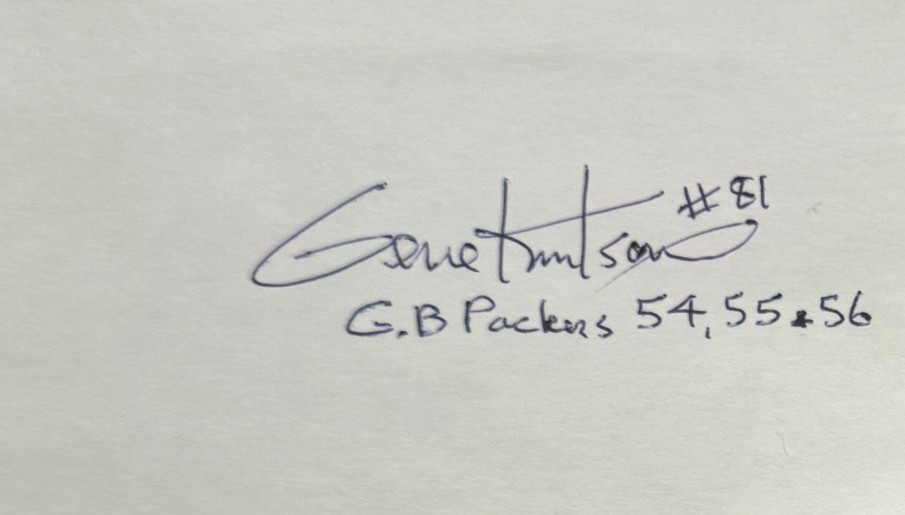 Gene Knutson #81
G.B Packers 54, 55 & 56